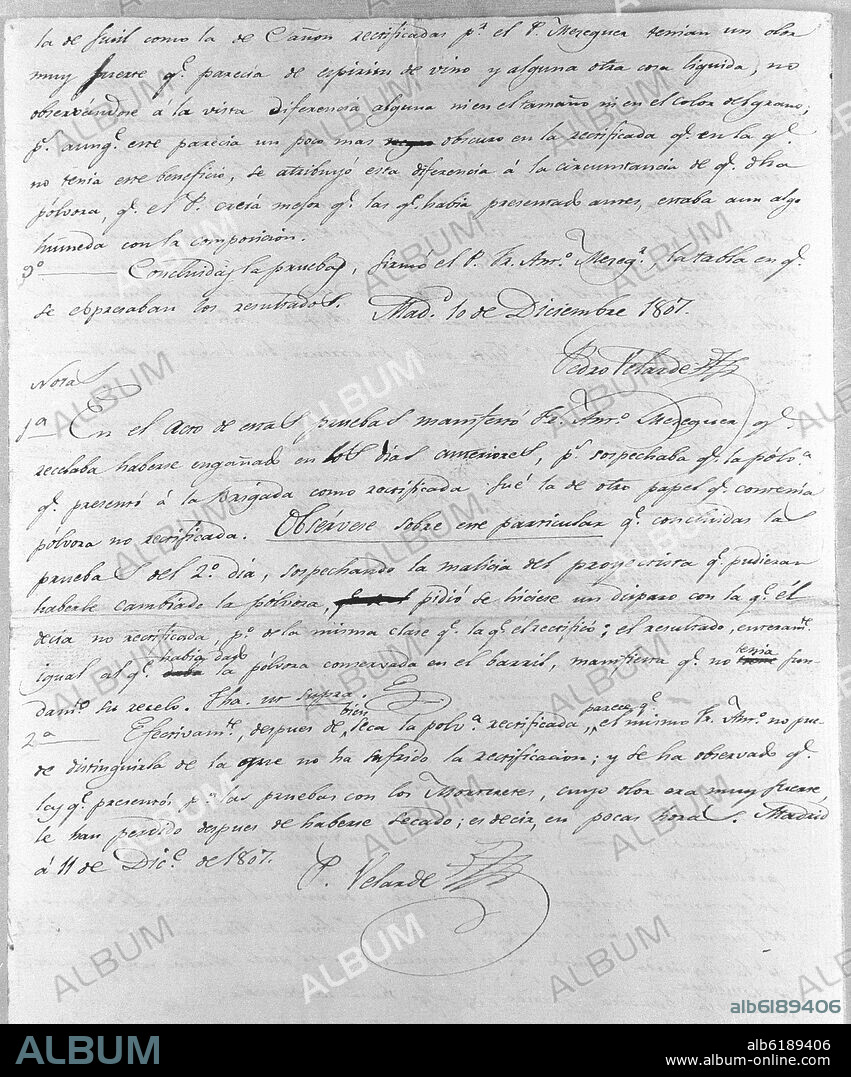 la de fusil como la de Cañon rectificadas pr. el P. Meseguer tenian un olor
muy fuerte q.e parecia de espiritu de vino y alguna otra cosa liquida, no
observandose á la vista diferencia alguna ni en el tamaño ni en el color del grano;
p.s aunq.e este parecia un poco mas obscuro en la rectificada q.e en la q.e
no tenia este beneficio, se atribuyó esta diferencia á la circunstancia de q.e dha
pólvora, q.e el P. creia mejor q.e las q.e habia presentado antes, estaba aun algo
húmeda con la composicion.
9º Concluidas las pruebas, firmó el P. Fr. Ant.º Meseg.r la tabla en q.e
se expresaban los resultados. Mad.d 10 de Diciembre 1807.
Pedro Velarde
Notas
1ª En el acto de estas pruebas manifestó Fr. Ant.º Meseguer q.e
recelaba haberse engañado en los dias anteriores, p.s sospechaba q.e la pólv.a
q.e presentó á la Brigada como rectificada fué la de otro papel q.e contenia
pólvora no rectificada. Obsérvese sobre este particular q.e concluidas las
pruebas del 2º dia, sospechando la malicia del proyectista q.e pudieran
haberle cambiado la pólvora, pidió se hiciese un disparo con la q.e él
decia no rectificada, p.o de la misma clase q.e la q.e el rectificó; el resultado, enteram.te
igual al q.e habia dado la pólvora conservada en el barril, manifiesta q.e no tenia fun-
dam.to su recelo. Fha. ut supra.
2ª Efectivam.te, despues de bien seca la polv.a rectificada, parece q.e el mismo Fr. Ant.º no pue-
de distinguirla de la que no ha sufrido la rectificacion; y se ha observado q.e
las q.e presentó p.a las pruebas con los Morteretes, cuyo olor era muy fuerte
le han perdido despues de haberse secado; es decir, en pocas horas. Madrid
á 11 de Dic.e de 1807.
P. Velarde
ALBUM
alb6189406
ALBUM
alb6189406
www.album-online.com